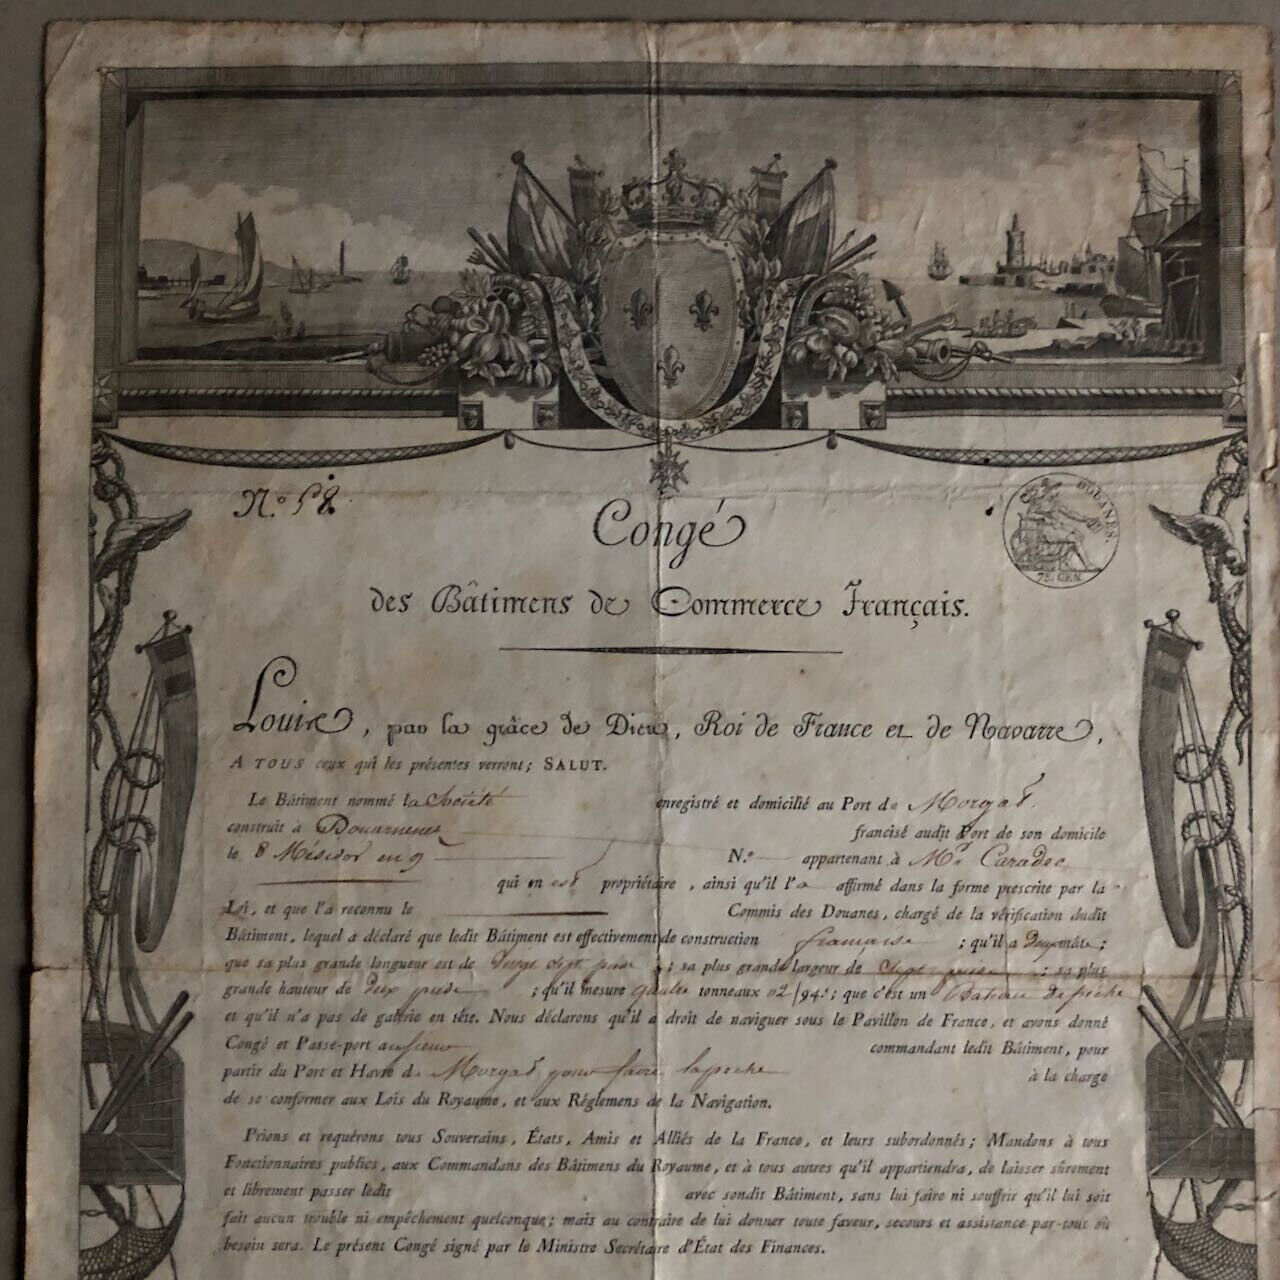 N.º 58.
DOUANES.
75. CEN.
Congé
des Bâtimens de Commerce Français.
Louis, par la grâce de Dieu, Roi de France et de Navarre,
A TOUS ceux qui les présentes verront; SALUT.
Le Bâtiment nommé la Société enregistré et domicilié au Port de Morgat.
construit à Douarnenez francisé audit Port de son domicile
le 8 Mésidor en 9 N.º appartenant à Mr. Caradec
qui en est propriétaire, ainsi qu'il l'a affirmé dans la forme prescrite par la
Loi, et que l'a reconnu le Commis des Douanes, chargé de la vérification dudit
Bâtiment, lequel a déclaré que ledit Bâtiment est effectivement de construction française ; qu'il a Deux mâts;
que sa plus grande longueur est de Vingt sept pieds ; sa plus grande largeur de Sept pieds ; sa plus
grande hauteur de ; qu'il mesure quatre tonneaux 02/94.e; que c'est un Bateau de pêche
et qu'il n'a pas de galerie en tête. Nous déclarons qu'il a droit de naviguer sous le Pavillon de France, et avons donné
Congé et Passe-port au Sieur commandant ledit Bâtiment, pour
partir du Port et Havre de Morgat pour faire la peche à la charge
de se conformer aux Lois du Royaume, et aux Réglemens de la Navigation.
Prions et requérons tous Souverains, États, Amis et Alliés de la France, et leurs subordonnés; Mandons à tous
Fonctionnaires publics, aux Commandans des Bâtimens du Royaume, et à tous autres qu'il appartiendra, de laisser sûrement
et librement passer ledit avec sondit Bâtiment, sans lui faire ni souffrir qu'il lui soit
fait aucun trouble ni empêchement quelconque; mais au contraire de lui donner toute faveur, secours et assistance par-tout où
besoin sera. Le présent Congé signé par le Ministre Secrétaire d'État des Finances.